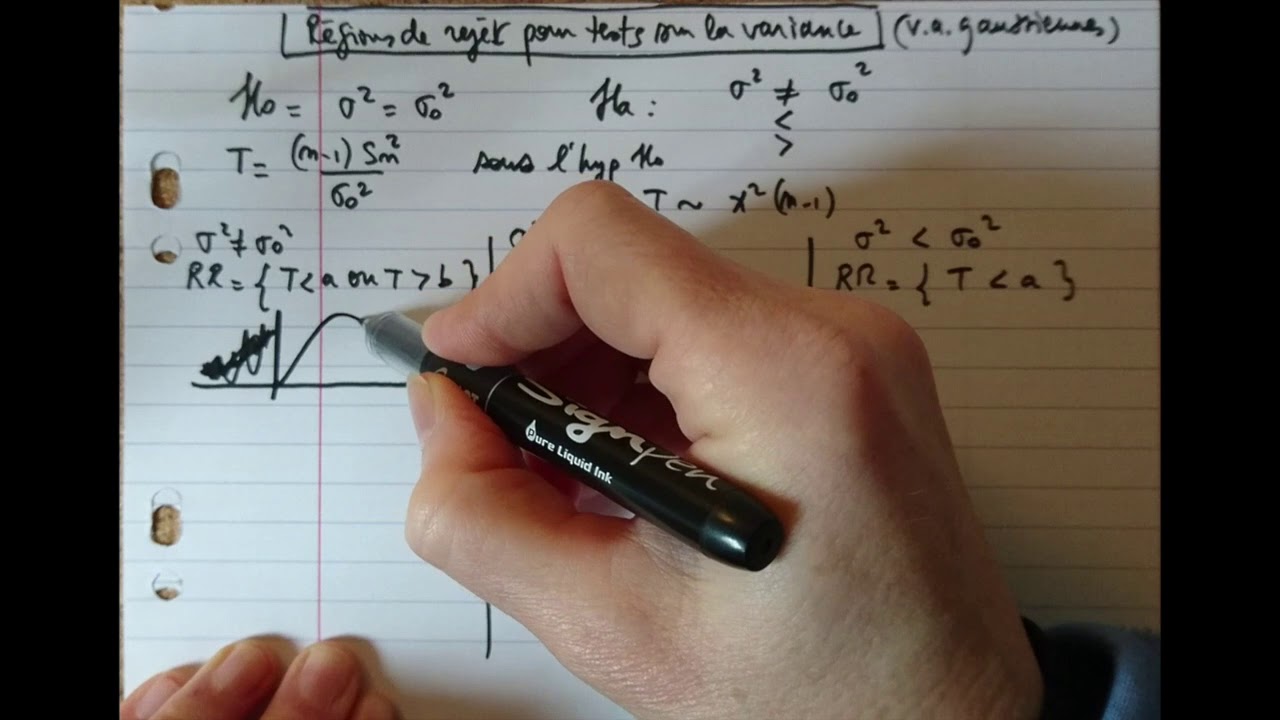 Régions de rejet pour tests sur la variance (v.a. gaussiennes)
H₀ = σ² = σ₀² Ha : σ² ≠ σ₀²
<
>
T = (n-1) Sn² / σ₀² sous l'hyp H₀
T ~ χ²(n-1)
σ² ≠ σ₀²
RR = { T < a ou T > b }
σ² < σ₀²
RR = { T < a }
Signpen
Pure Liquid Ink